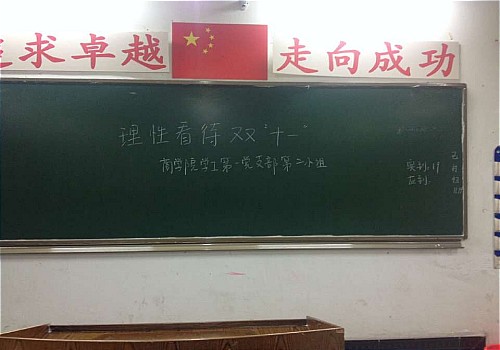 追求卓越 走向成功
理性看待双"十一"
商学院学工第一党支部第二小组
实到:17
应到: